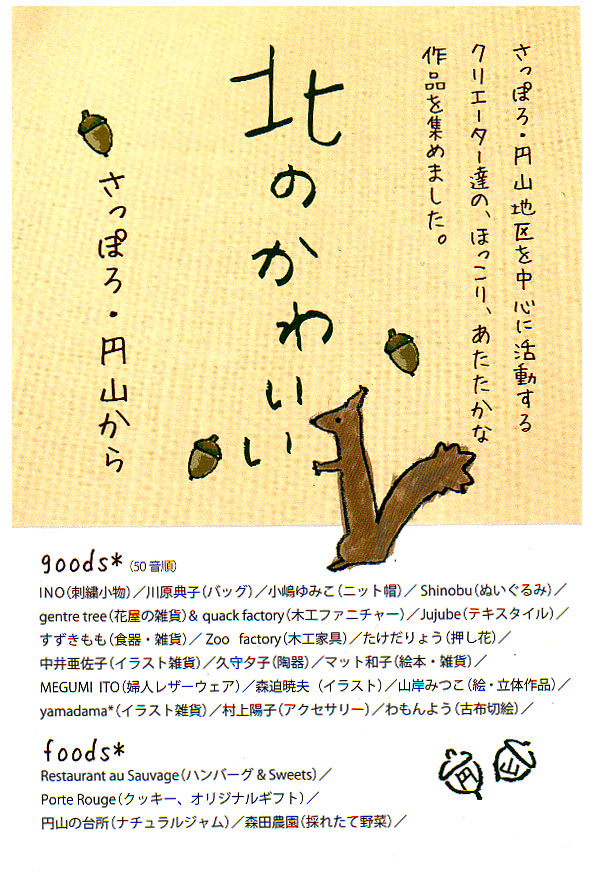 さっぽろ・円山地区を中心に活動する
クリエーター達の、ほっこり、あたたかな
作品を集めました。
北のかわいい
さっぽろ・円山から
goods*（50音順）
INO（刺繍小物）／川原典子（バッグ）／小嶋ゆみこ（ニット帽）／ Shinobu（ぬいぐるみ）／
gentre tree（花屋の雑貨）& quack factory（木工ファニチャー）／Jujube（テキスタイル）／
すずきもも（食器・雑貨）／ Zoo factory（木工家具）／たけだりょう（押し花）／
中井亜佐子（イラスト雑貨）／久守夕子（陶器）／マット和子（絵本・雑貨）／
MEGUMI ITO（婦人レザーウェア）／森迫暁夫（イラスト）／山岸みつこ（絵・立体作品）／
yamadama*（イラスト雑貨）／村上陽子（アクセサリー）／わもんよう（古布切絵）／
foods*
Restaurant au Sauvage（ハンバーグ & Sweets）／
Porte Rouge（クッキー、オリジナルギフト）／
円山の台所（ナチュラルジャム）／森田農園（採れたて野菜）／
円山